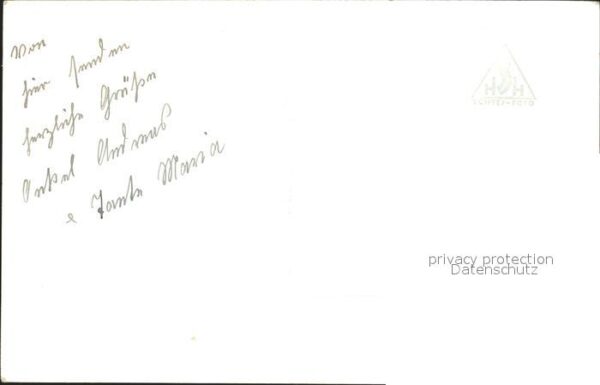 Von
hier senden
herzliche Grüße
Onkel Andreas
e Tante Maria
H H
privacy protection
Datenschutz